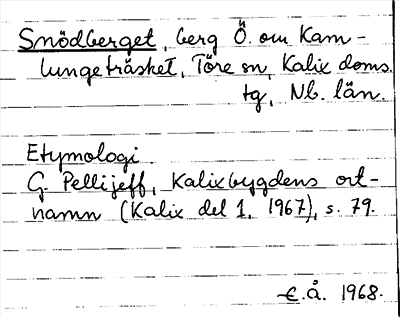 Snödberget, berg Ö. om Kam-
lungeträsket, Töre sn, Kalix doms.
tg, Nb. län.
Etymologi
G. Pellijeff, Kalixbygdens ort-
namn (Kalix del 1, 1967), s. 79.
E.Å. 1968.